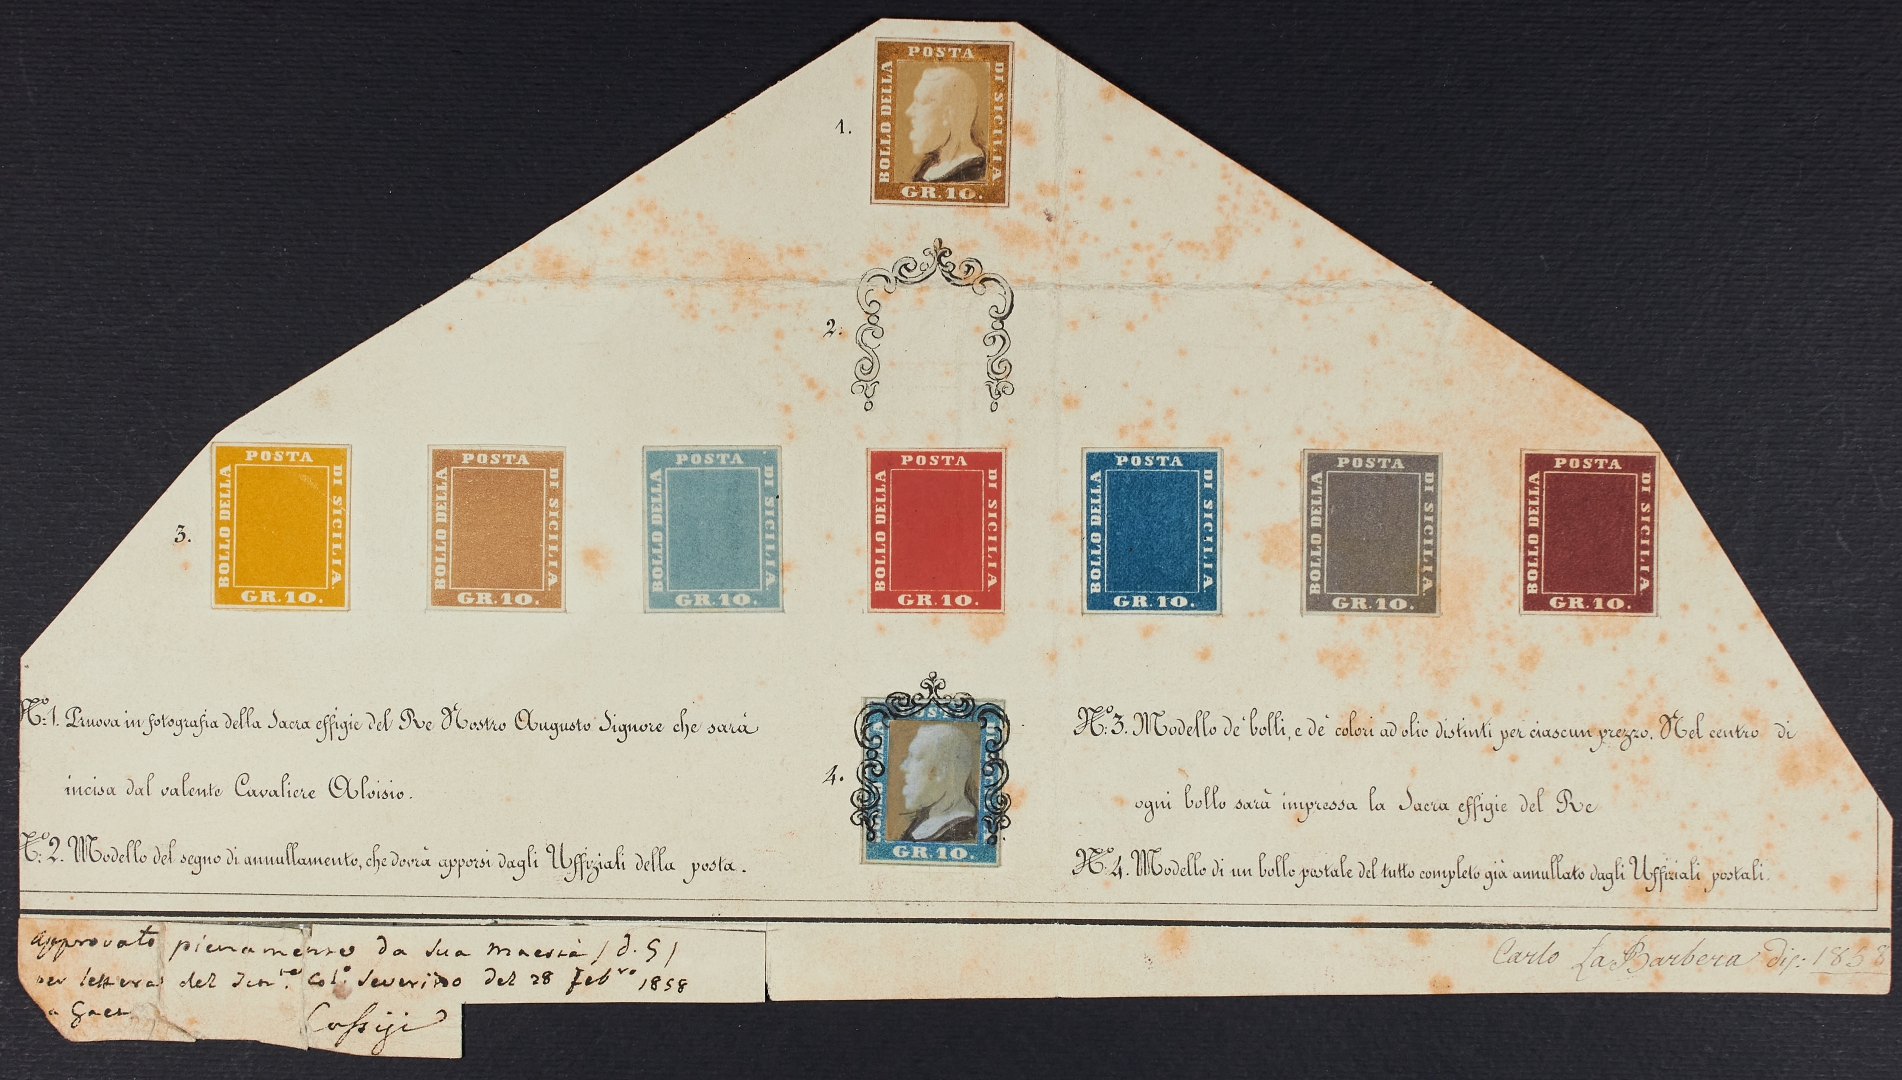 POSTA
BOLLO DELLA
DI SICILIA
GR. 10.
1.
2.
3.
POSTA
BOLLO DELLA
DI SICILIA
GR. 10.
POSTA
BOLLO DELLA
DI SICILIA
GR. 10.
POSTA
BOLLO DELLA
DI SICILIA
GR. 10.
POSTA
BOLLO DELLA
DI SICILIA
GR. 10.
POSTA
BOLLO DELLA
DI SICILIA
GR. 10.
POSTA
BOLLO DELLA
DI SICILIA
GR. 10.
POSTA
BOLLO DELLA
DI SICILIA
GR. 10.
Nº: 1. Pruova in fotografia della Sacra effigie del Re Nostro Augusto Signore che sarà
incisa dal valente Cavaliere Aloisio.
Nº: 2. Modello del segno di annullamento, che dovrà apporsi dagli Uffiziali della posta.
4.
GR. 10.
Nº: 3. Modello de' bolli, e de' colori ad olio distinti per ciascun prezzo. Nel centro di
ogni bollo sarà impressa la Sacra effigie del Re
Nº: 4. Modello di un bollo postale del tutto completo già annullato dagli Uffiziali postali.
Approvato pienamente da Sua Maestà / d. G /
per lettera del Ten.te Col.o Severino del 28 Feb.ro 1858
a
Cassisi
Carlo La Barbera dis: 1858